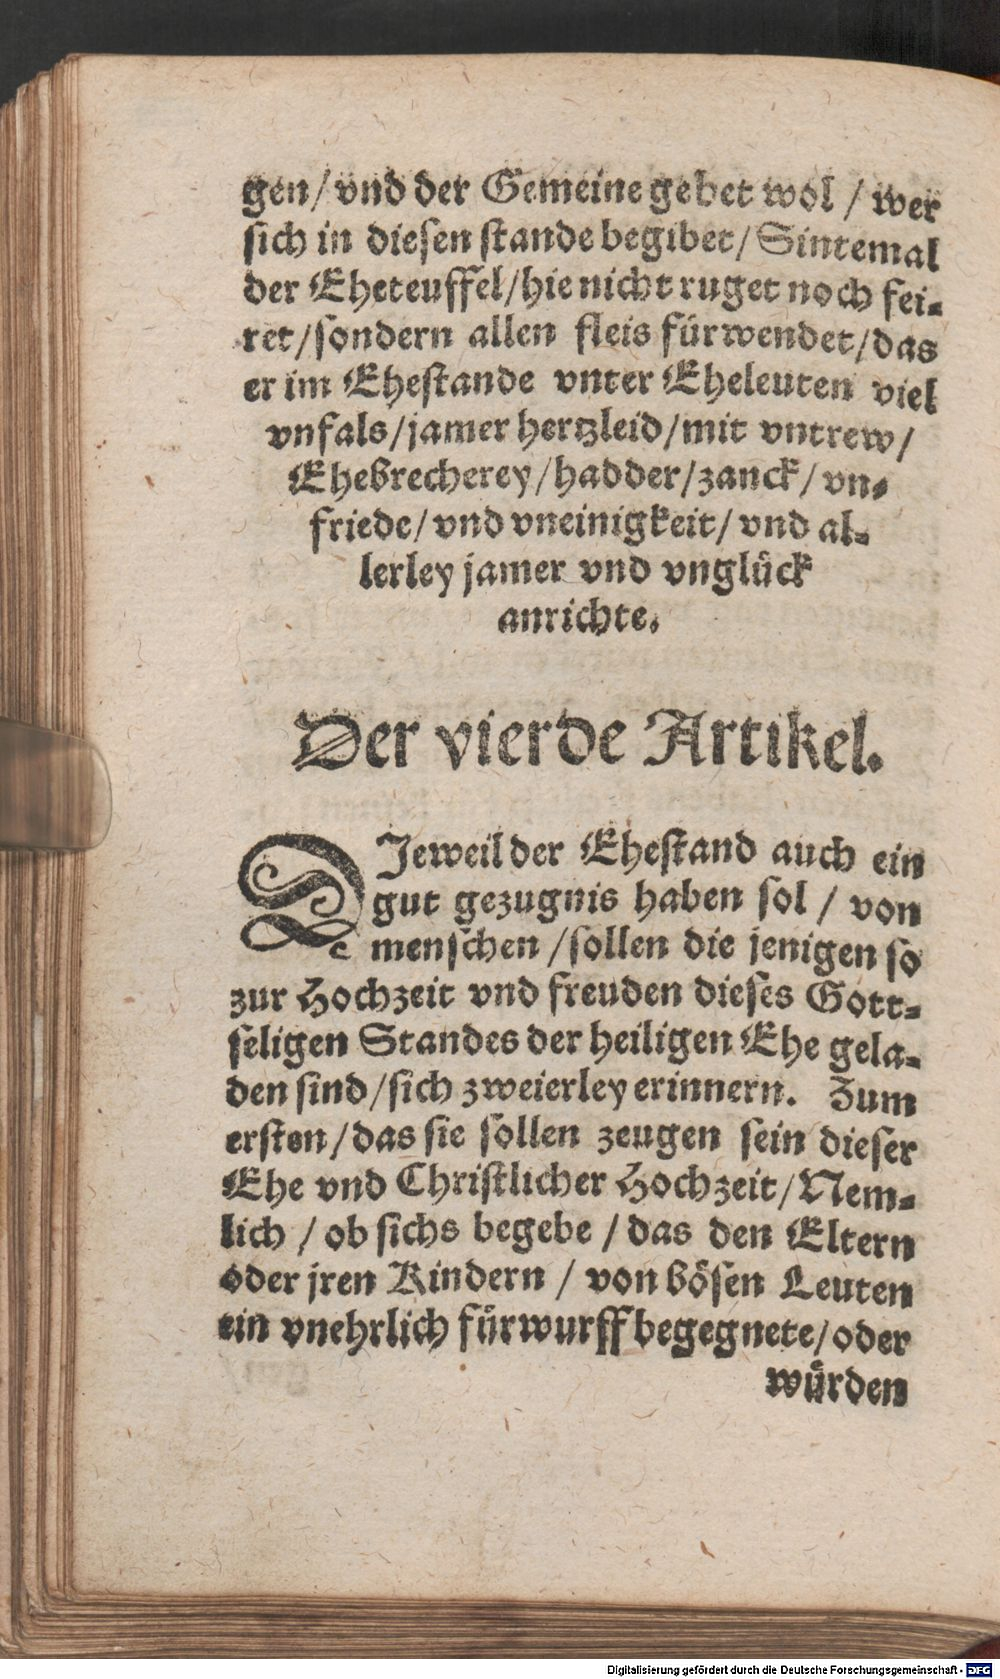 gen/ vnd der Gemeine gebet wol / wer
sich in diesen stande begibet/ Sintemal
der Eheteuffel/hie nicht ruget noch fei-
ret/sondern allen fleis fürwendet/das
er im Ehestande vnter Eheleuten viel
vnfals/jamer hertzleid/mit vntrew/
Ehebrecherey/hadder/zanck/ vn-
friede/ vnd vneinigkeit/ vnd al-
lerley jamer vnd vnglück
anrichte.
Der vierde Artikel.
DJeweil der Ehestand auch ein
gut gezugnis haben sol / von
menschen /sollen die jenigen so
zur Hochzeit vnd freuden dieses Gott-
seligen Standes der heiligen Ehe gela-
den sind/sich zweierley erinnern. Zum
ersten/das sie sollen zeugen sein dieser
Ehe vnd Christlicher Hochzeit/Nem-
lich / ob sichs begebe / das den Eltern
oder jren Kindern / von bösen Leuten
ein vnehrlich fürwurff begegnete/oder
würden
Digitalisierung gefördert durch die Deutsche Forschungsgemeinschaft - DFG